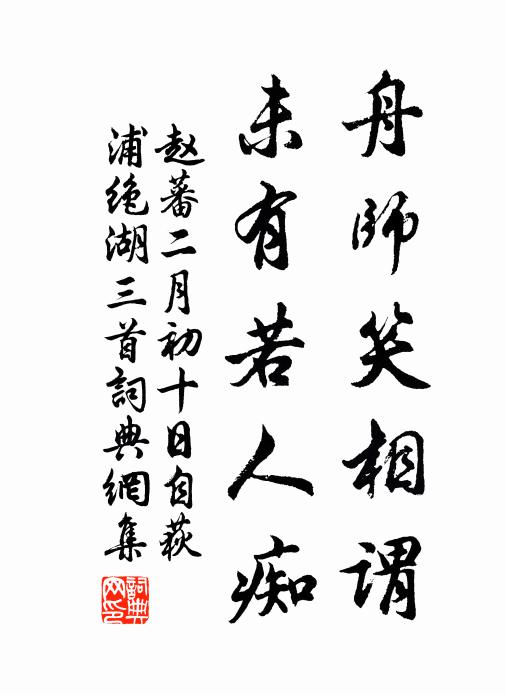 舟師笑相謂
未有若人痴
赵蕃二月初十日自荻
浦绝湖三首詞典網集